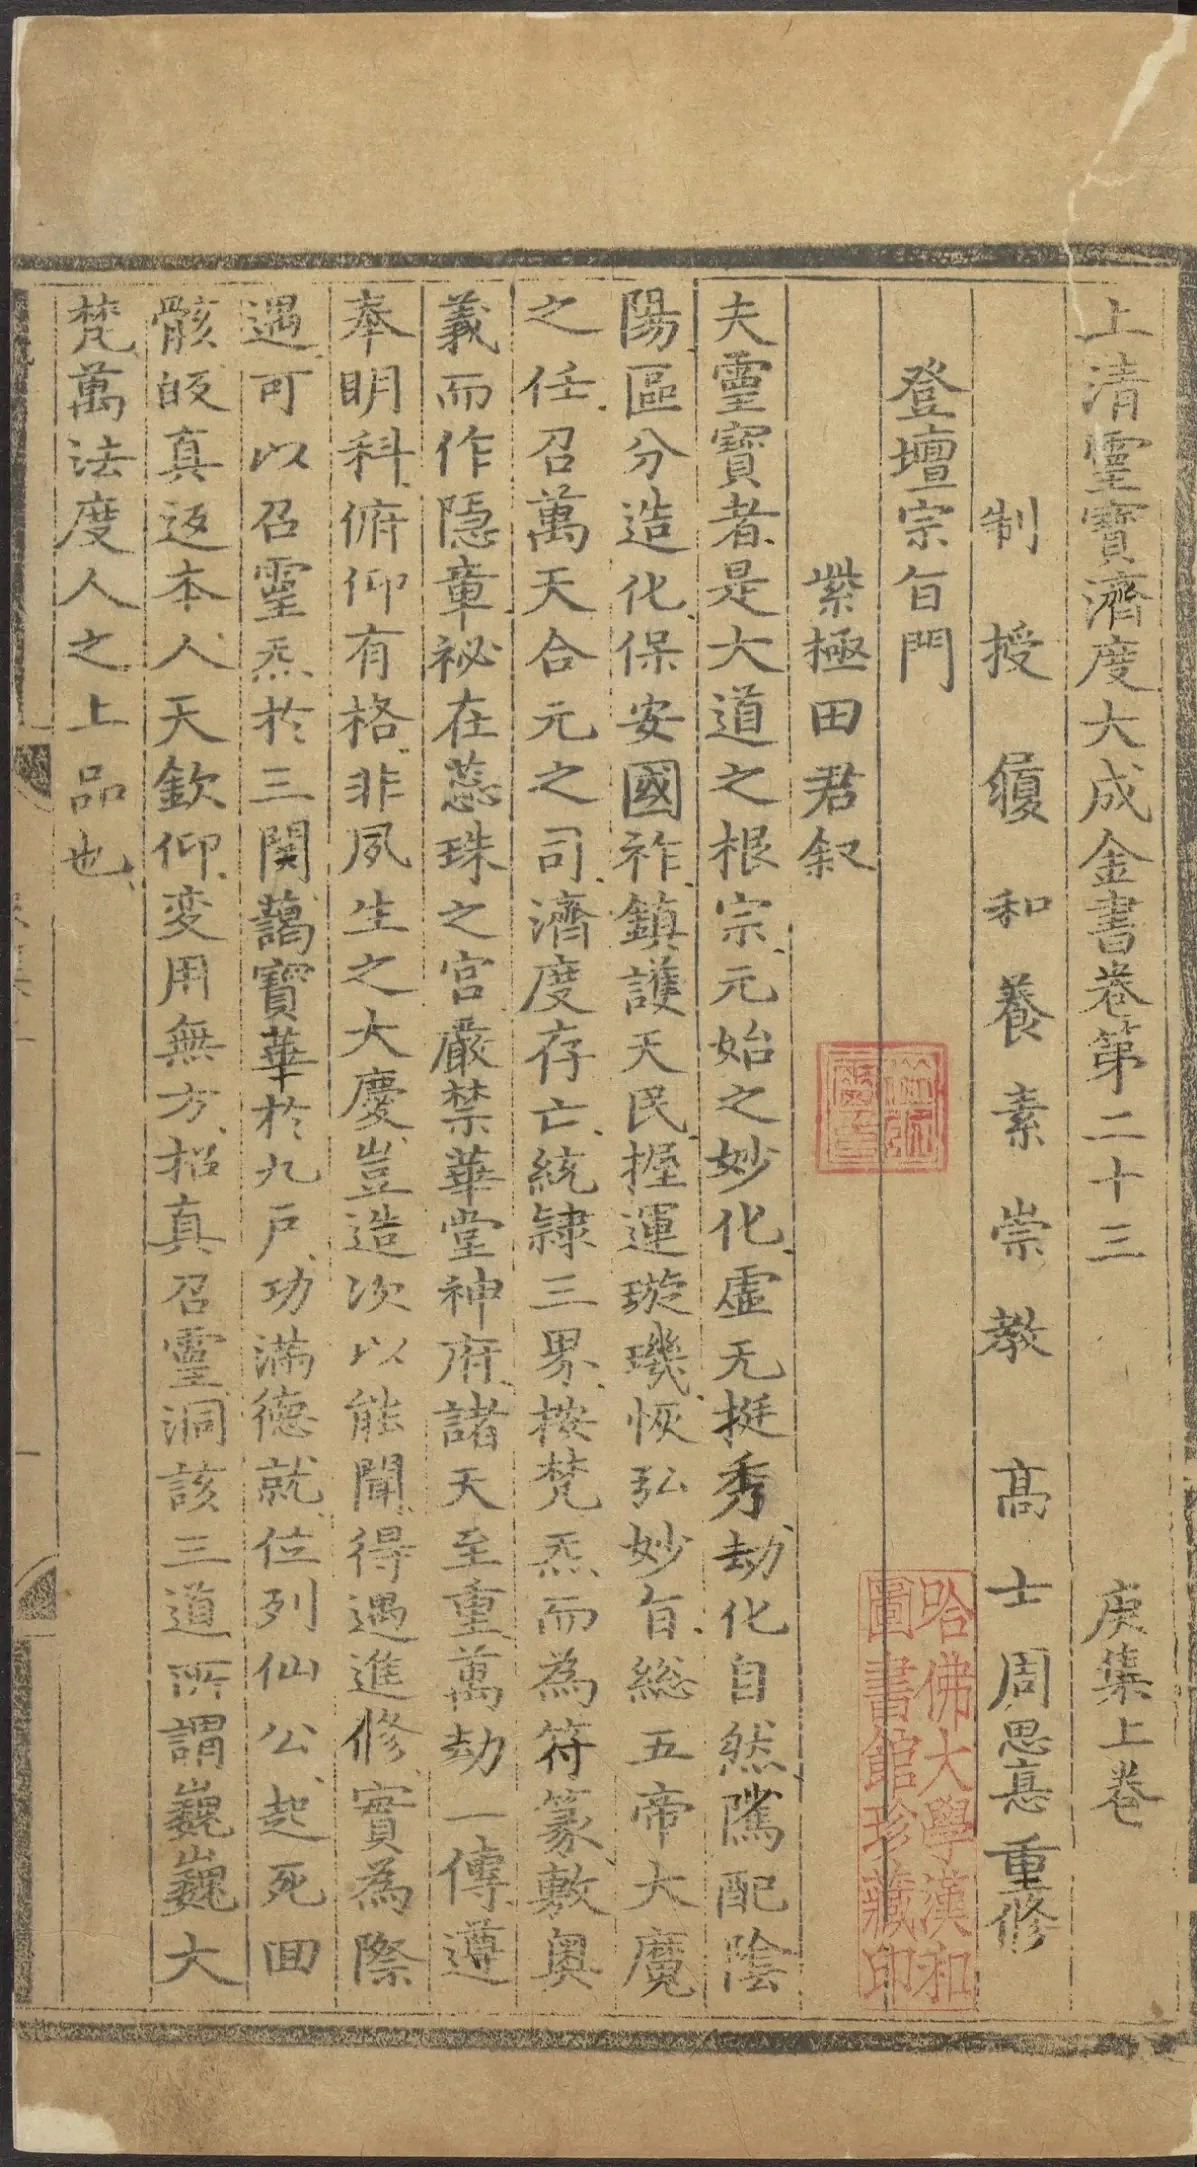 上清靈寶濟度大成金書卷第二十三 庚集上卷
制授履和養素崇教高士周思得重修
登壇宗旨門
紫極田君叙
夫靈寶者是大道之根宗元始之妙化虛无挺秀劫化自然隲配陰
陽區分造化保安國祚鎮護天民握運璇璣恢弘妙旨総五帝大魔
之任召萬天合元之司濟度存亡統隷三界按梵炁而為符篆敷奥
義而作隠章祕在蕊珠之宮嚴禁華堂神府諸天至重萬劫一傳遵
奉明科俯仰有格非夙生之大慶豈造次以能聞得遇進修實為際
遇可以召靈炁扵三関藹寳華扵九戸功滿德就位列仙公起死囬
骸皈真返本人天欽仰変用無方招真召靈洞該三道所謂巍巍大
梵萬法度人之上品也
哈佛大學漢和
圖書館珍藏印